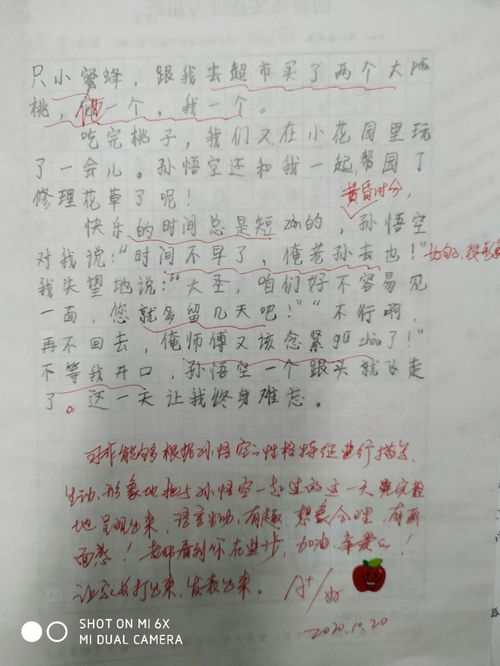 只小蜜蜂，跟我去超市买了两个大
桃，他一个，我一个。
吃完桃子，我们又在小花园里玩
了一会儿。孙悟空还和我一起帮园丁
修理花草了呢！
黄昏时分，
快乐的时间总是短zàn的，孙悟空
对我说：“时间不早了，俺老孙去也！”
我失望地说：“大圣，咱们好不容易见
一面，您就多留几天吧！”“不行啊，
再不回去，俺师傅又该念紧gū zhòu了！”
不等我开口，孙悟空一个跟头就飞走
了。这一天让我终身难忘。
能够根据孙悟空的性格特征进行描写，
生动、形象地把与孙悟空一起过的这一天完整
地呈现出来，语言生动、有趣，想象合理，有画
面感！老师看到你在进步，加油，亲爱的！
让家长打出来，发表出来。 A+/好
2020.10.20
SHOT ON MI 6X
MI DUAL CAMERA